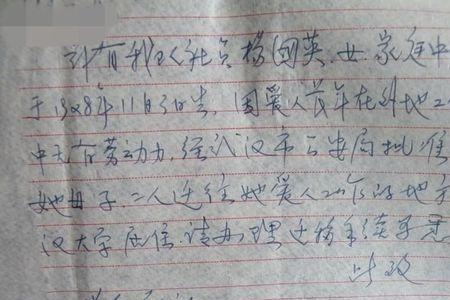 计有我区社员杨国英,女,家庭中
于1928年11月3日生,因爱人常年在外地工
中无有劳动力,经武汉市公安局批准
她母子二人迁往她爱人工作的地方
汉大学居住.请办理迁移手续手
此致